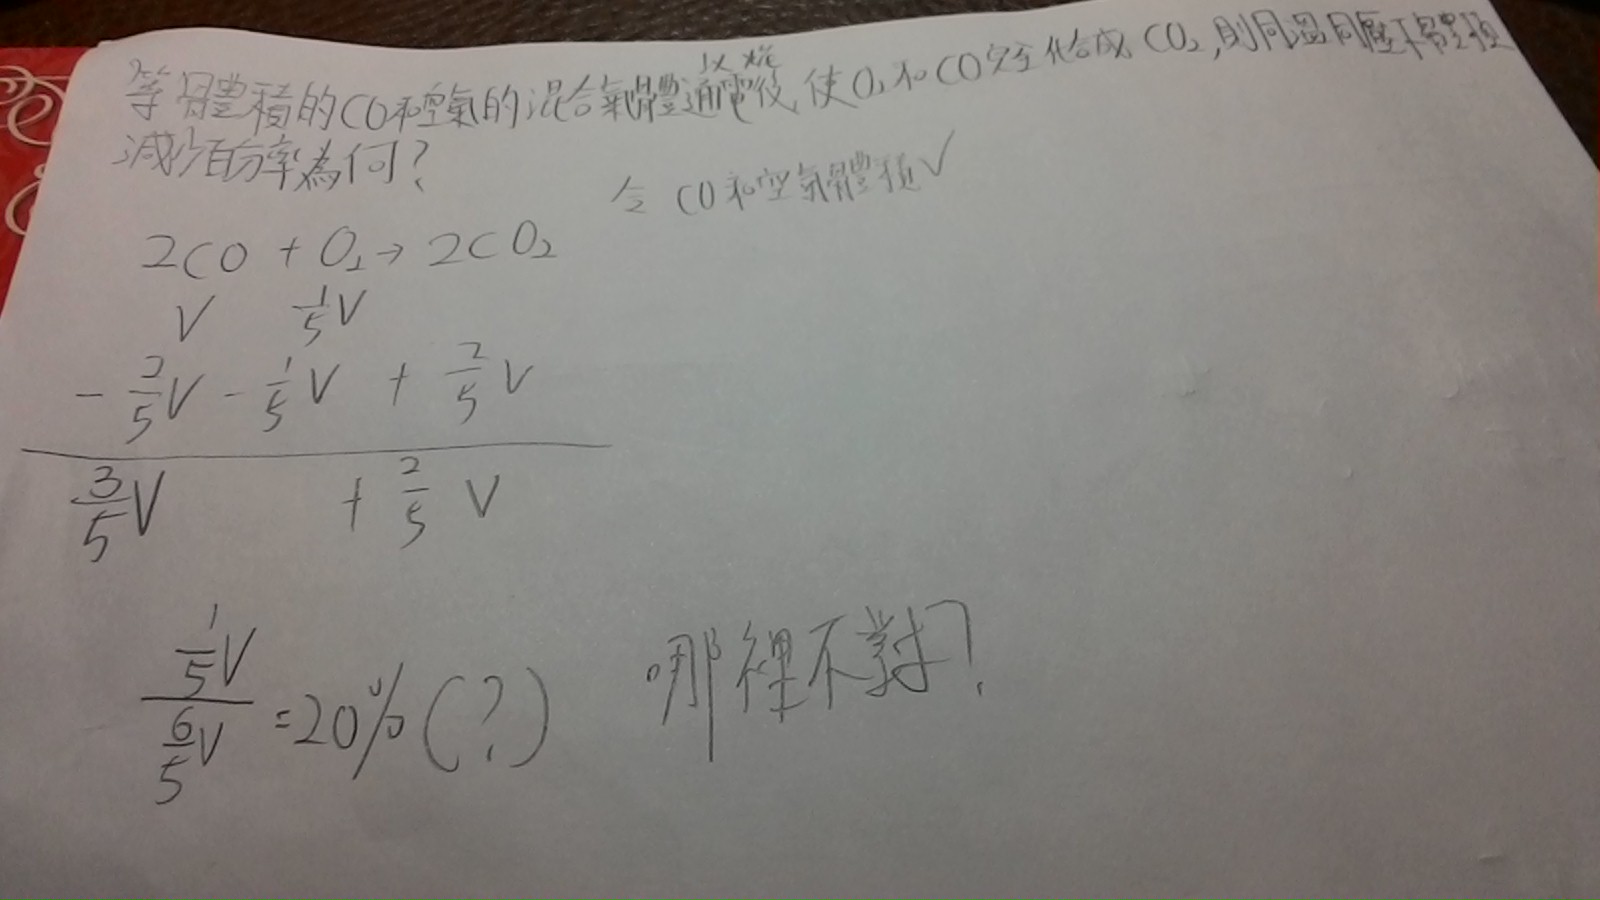 等體積的CO和空氣的混合氣體通電後,使O₂和CO完全化合成CO₂,則同溫同壓下體積
減少百分率為何?
令 CO和空氣體積V
2CO + O₂ → 2CO₂
V 1/5V
- 2/5V - 1/5V + 2/5V
3/5V + 2/5V
1/5V / 6/5V = 20% (?)
哪裡不對?